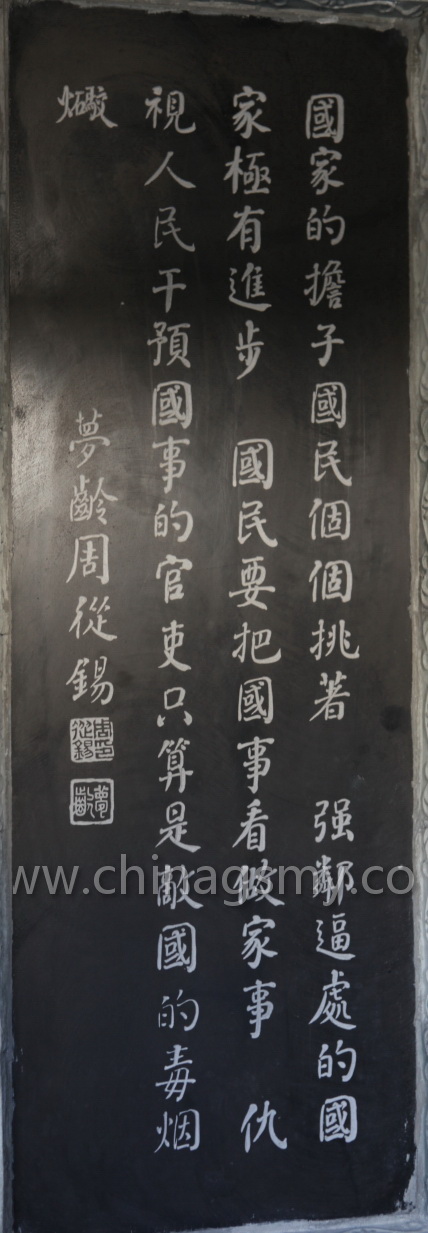 國家的擔子國民個個挑著　强鄰逼處的國
家極有進步　國民要把國事看做家事　仇
視人民干預國事的官吏只算是敵國的毒烟
夢齡周從錫
周從錫印
夢齡
www.chinagsmj.co